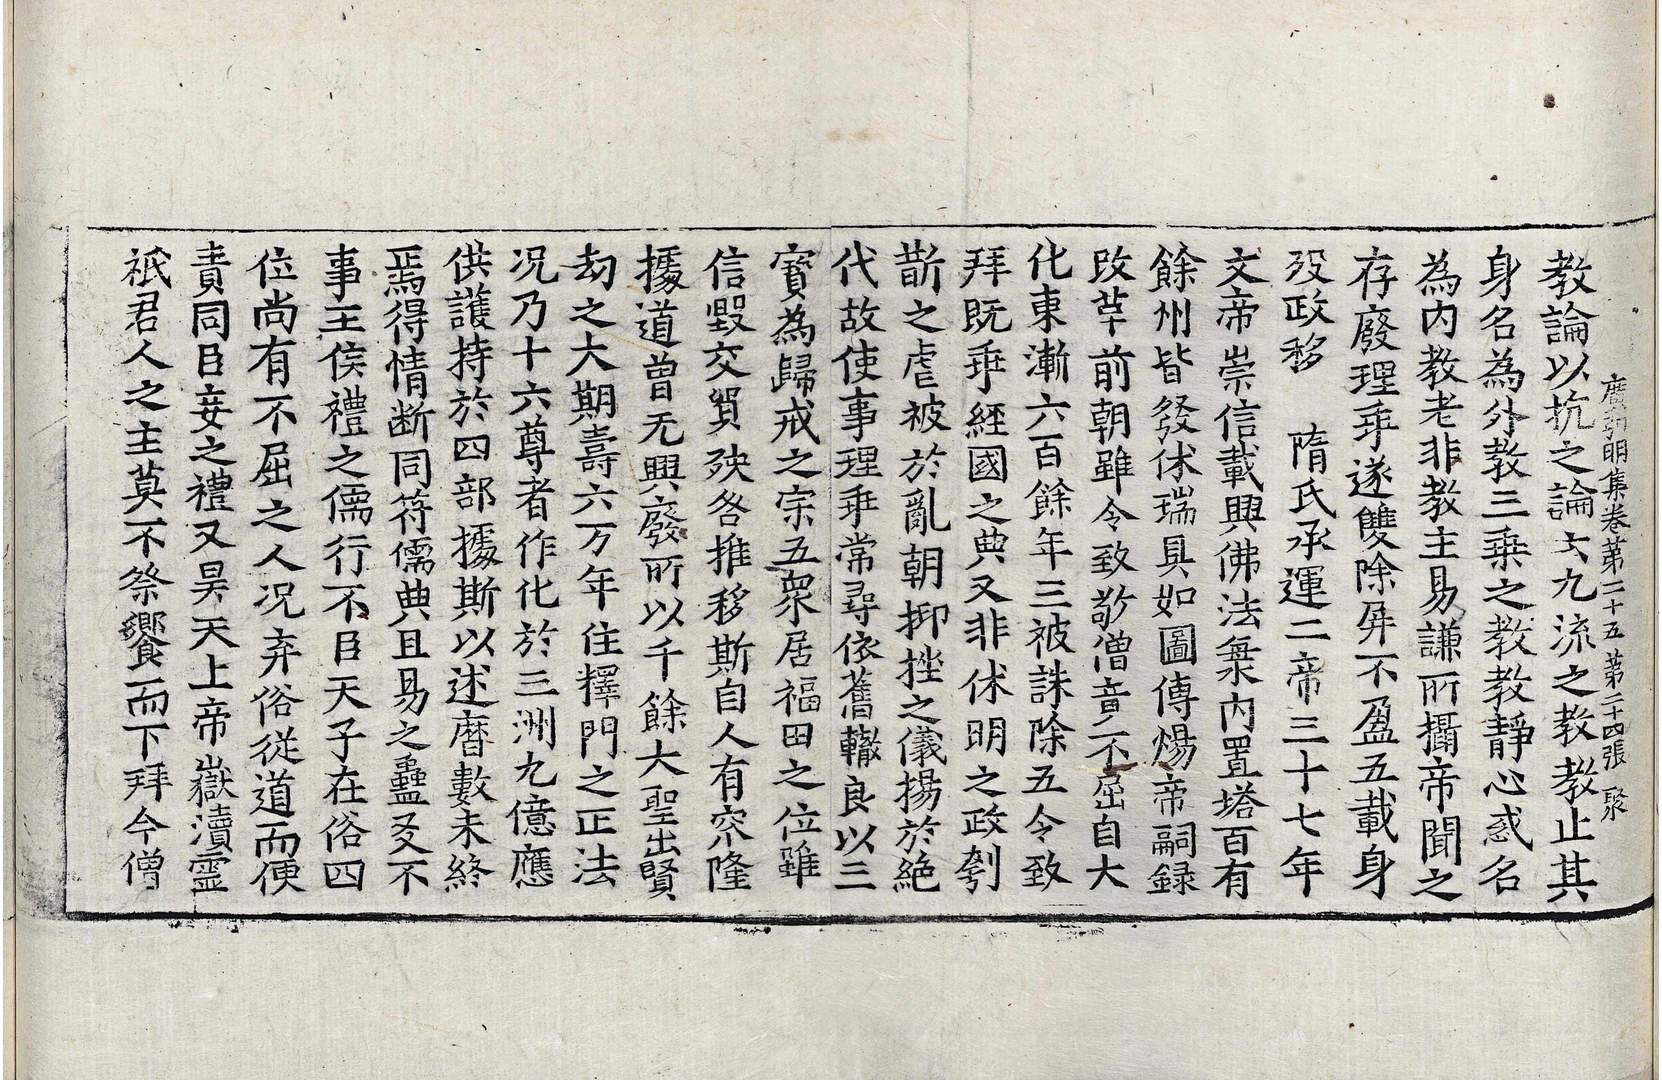 廣弘明集卷第二十五 第二十四張 聚
教論以抗之論云九流之教教止其
身名為外教三乗之教教静心惑名
為内教老非教主易謙所攝帝聞之
存廢理乖遂雙除屏不盈五載身
歿政移 隋氏承運二帝三十七年
文帝崇信載興佛法海内置塔百有
餘州皆發休瑞具如圖傳煬帝嗣録
改革前朝雖令致敬僧竟不屈自大
化東漸六百餘年三被誅除五令致
拜既乖經國之典又非休明之政刳
斮之虐被於亂朝抑挫之儀揚於絶
代故使事理乖常尋依舊轍良以三
寳為歸戒之宗五衆居福田之位雖
信毁交貿殃咎推移斯自人有窊隆
據道曾无興廢所以千餘大聖出賢
劫之大期壽六万年住釋門之正法
况乃十六尊者作化於三洲九億應
供護持於四部據斯以述曆數未終
焉得情断同符儒典且易之蠱爻不
事王侯禮之儒行不臣天子在俗四
位尚有不屈之人况弃俗從道而便
責同臣妾之禮又昊天上帝嶽瀆靈
祇君人之主莫不祭饗而下拜今僧